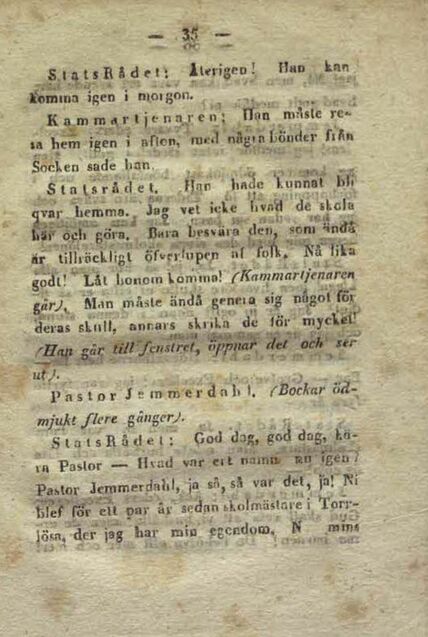 — 35 —
StatsRådet: Återigen! Han kan
komma igen i morgon.
Kammartjenaren: Han måste re-
sa hem igen i afton, med några bönder från
Socken sade han.
Statsrådet. Han hade kunnat bli
qvar hemma. Jag vet icke hvad de skola
här och göra. Bara besvära den, som ändå
är tillräckligt öfverlupen af folk. Nå lika
godt! Låt honom komma! (Kammartjenaren
går). Man måste ändå genera sig något för
deras skull, annars skrika de för mycket!
(Han går till fenstret, öppnar det och ser
ut).
Pastor Jemmerdahl. (Bockar öd-
mjukt flere gånger).
StatsRådet: God dag, god dag, kä-
ra Pastor — Hvad var ert namn nu igen?
Pastor Jemmerdahl, ja så, så var det, ja! Ni
blef för ett par år sedan skolmästare i Torr-
lösa, der jag har min egendom, N mins